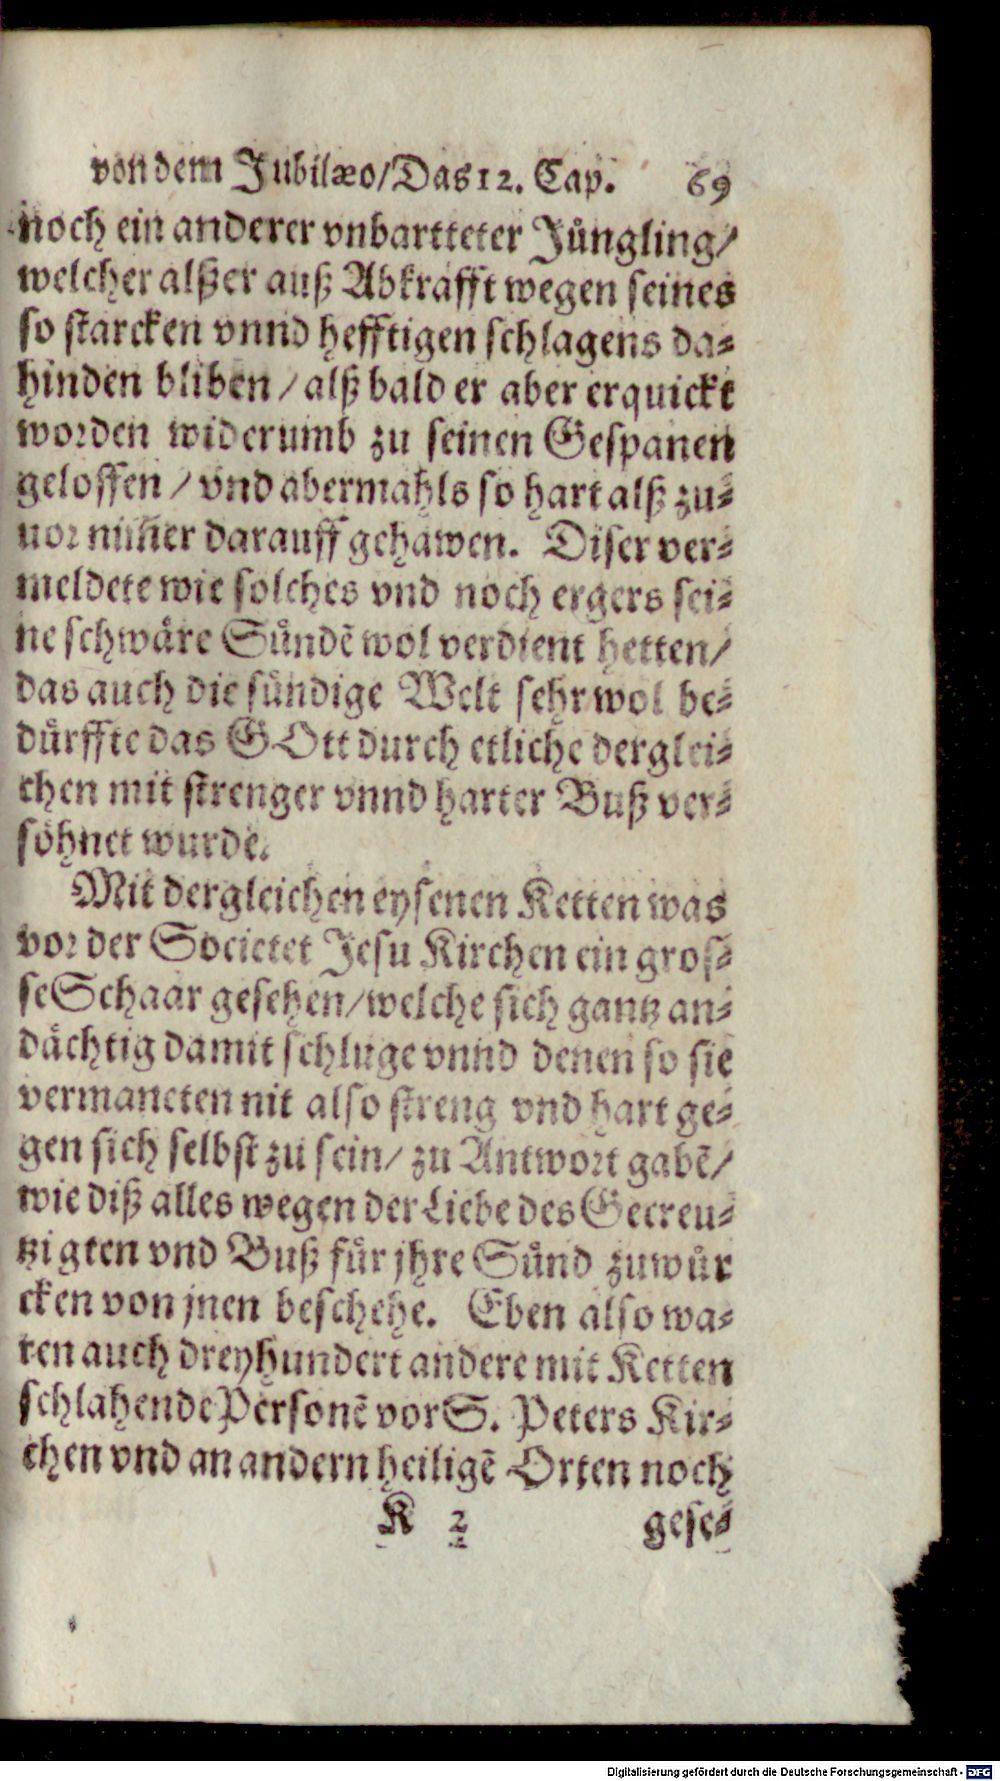 von dem Jubilæo/Das 12. Cap. 69
noch ein anderer vnbartteter Jüngling/
welcher alßer auß Abkrafft wegen seines
so starcken vnnd hefftigen schlagens da-
hinden bliben / alß bald er aber erquickt
worden widerumb zu seinen Gespanen
geloffen / vnd abermahls so hart alß zu-
uor nim̄er darauff gehawen. Diser ver-
meldete wie solches vnd noch ergers sei-
ne schwäre Sündē wol verdient hetten/
das auch die sündige Welt sehr wol be-
dürffte das GOtt durch etliche derglei-
chen mit strenger vnnd harter Buß ver-
söhnet wurde.
Mit dergleichen eysenen Ketten was
vor der Societet Jesu Kirchen ein gros-
se Schaar gesehen/welche sich gantz an-
dächtig damit schluge vnnd denen so sie
vermaneten nit also streng vnd hart ge-
gen sich selbst zu sein/ zu Antwort gabē/
wie diß alles wegen der Liebe des Gecreu-
tzigten vnd Buß für jhre Sünd zuwür
cken von jnen beschehe. Eben also wa-
ren auch dreyhundert andere mit Ketten
schlahende Personē vor S. Peters Kir-
chen vnd an andern heiligē Orten noch
K 2 gese-
Digitalisierung gefördert durch die Deutsche Forschungsgemeinschaft - DFG